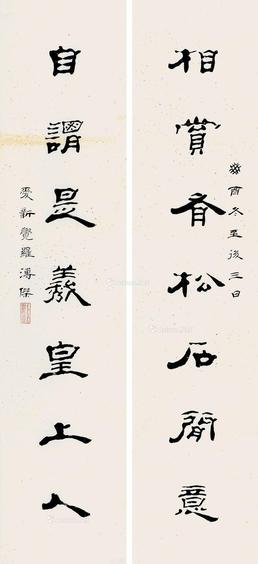 癸酉冬至後三日
相賞有松石間意
自謂是羲皇上人
愛新覺羅溥傑